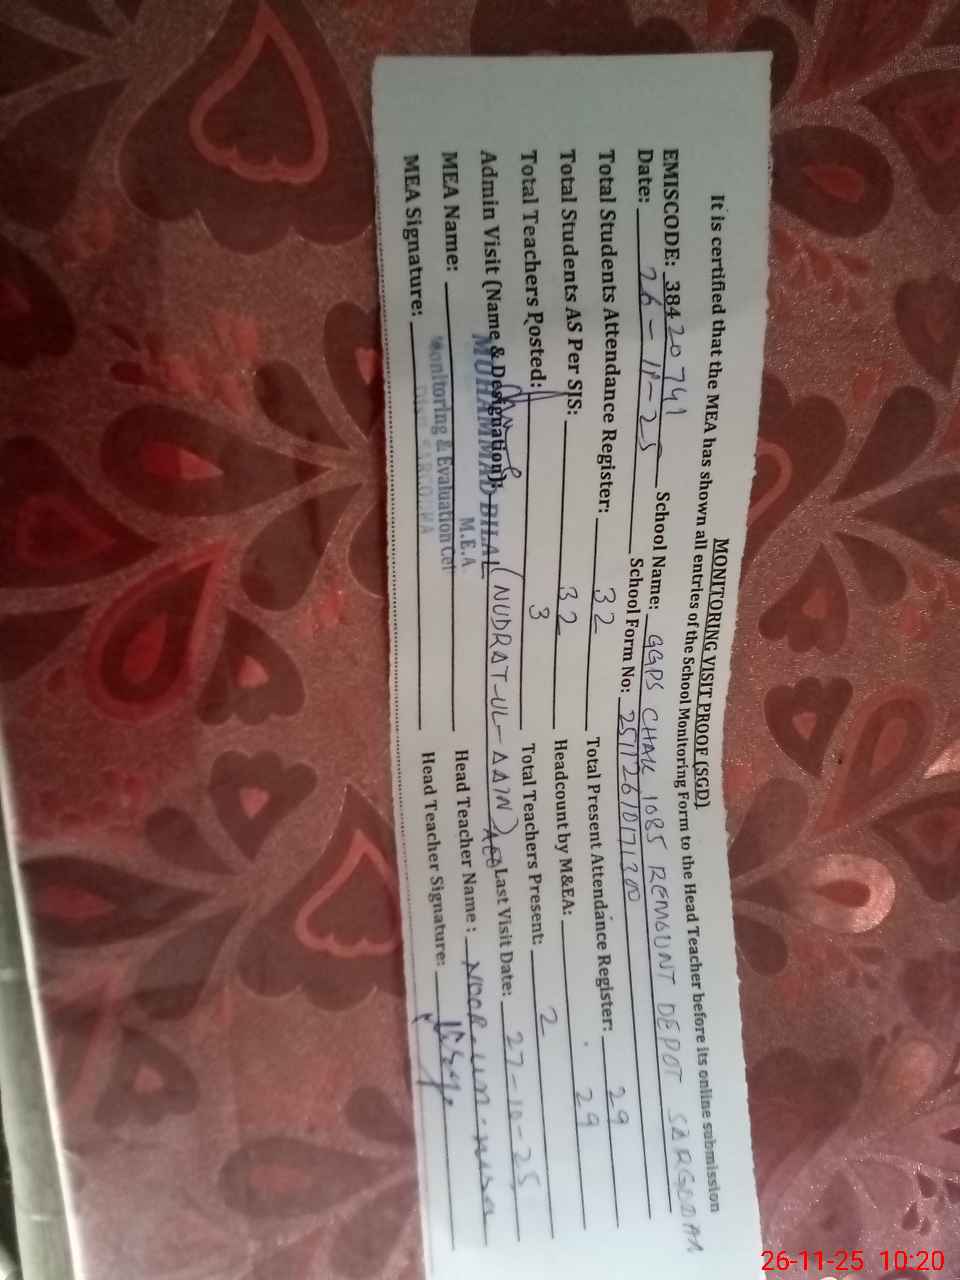 MONITORING VISIT PROOF (SGD)
It is certified that the MEA has shown all entries of the School Monitoring Form to the Head Teacher before its online submission
EMISCODE: 38420741 School Name: GGPS CHAK 108S REMOUNT DEPOT SARGODAH
Date: 26-11-25 School Form No:
Total Students Attendance Register: 32 Total Present Attendance Register: 29
Total Students AS Per SIS: 32 Headcount by M&EA: 29
Total Teachers Posted: 3 Total Teachers Present: 2
Admin Visit (Name & Designation): (NUDRAT-UL-AAIN) AEO Last Visit Date: 27-10-25
MUHAMMAD BILAL
M.E.A
MEA Name: Head Teacher Name: NOOR-un-nisa
Monitoring & Evaluation Cell
Distt. SARGODHA
MEA Signature: Head Teacher Signature:
26-11-25 10:20